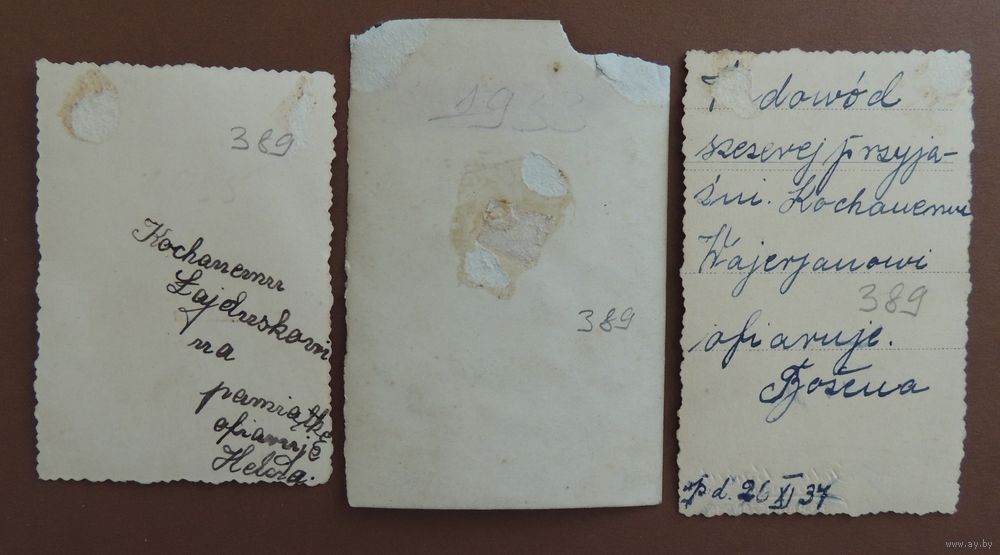 389
Kochanemu
Łajduskowi
na
pamiątkę
ofiaruje
Hela.
1933
389
dowód
szczerej przyja-
źni. Kochanemu
Wajerjanowi
389
ofiaruje.
Bożena
d. 26 XI 37
www.ay.by